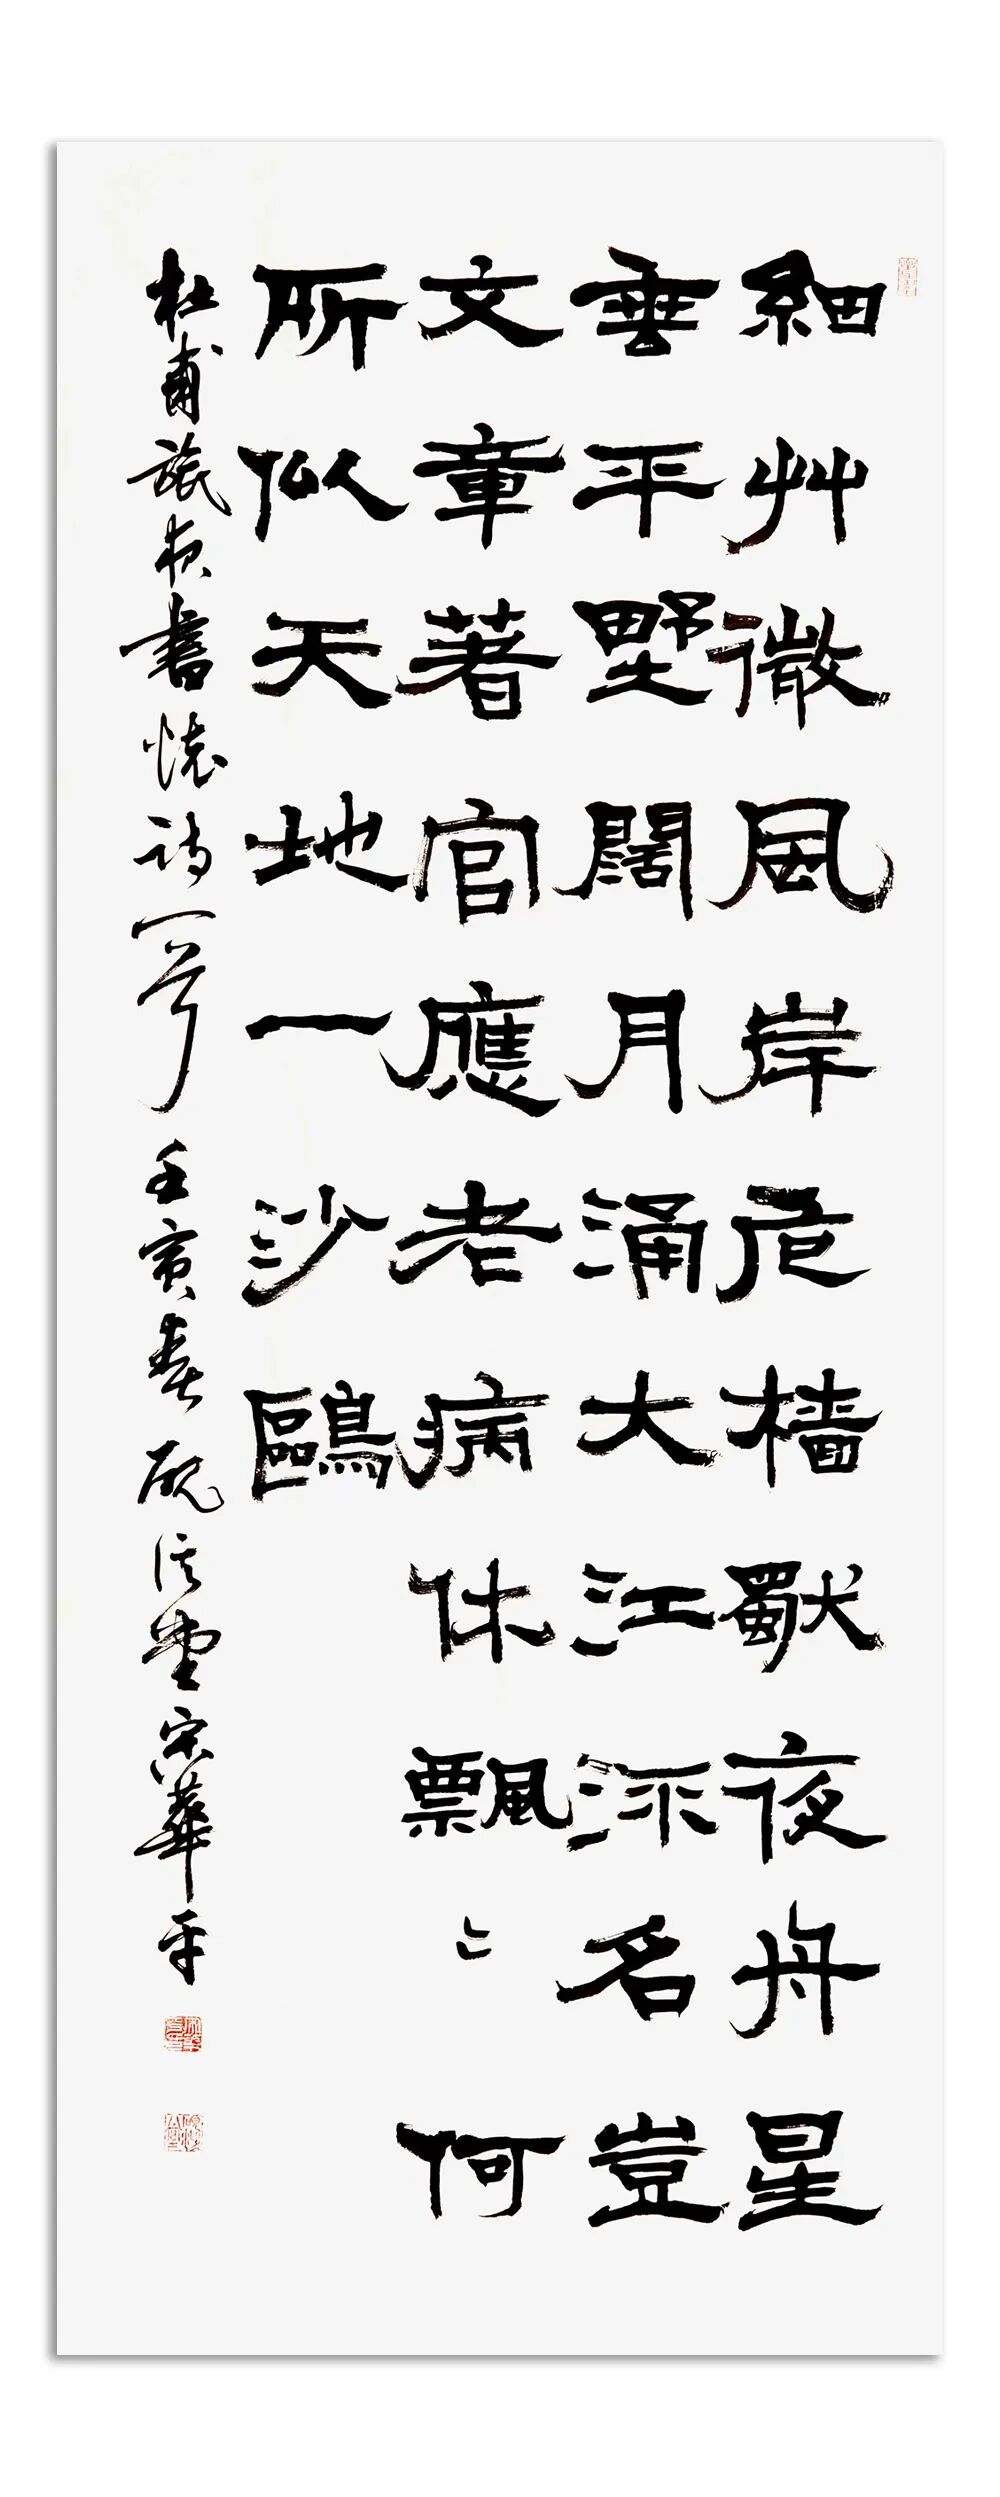 細艸微風岸危檣獨夜舟星
垂平野闊月涌大江流名豈
文章著官應老病休飄〻何
所似天地一沙鷗
杜甫旅夜書懷詩一首壬寅春堂宋華平